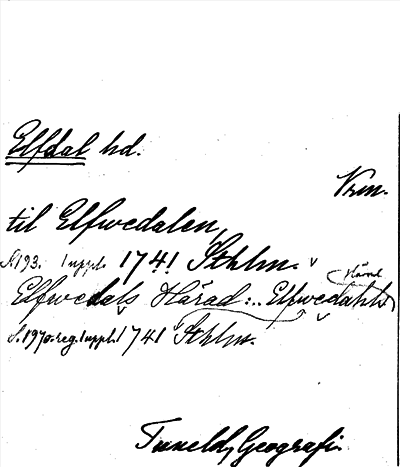 Elfdal hd.
Vrm.
til Elfwedalen,
S. 193. 1 uppl. 1741 Sthlm.
Härad
Elfwedals Härad: Elfwedahls
S. 197 reg. 1 uppl. 1741 Sthlm.
Tuneld, Geografi.